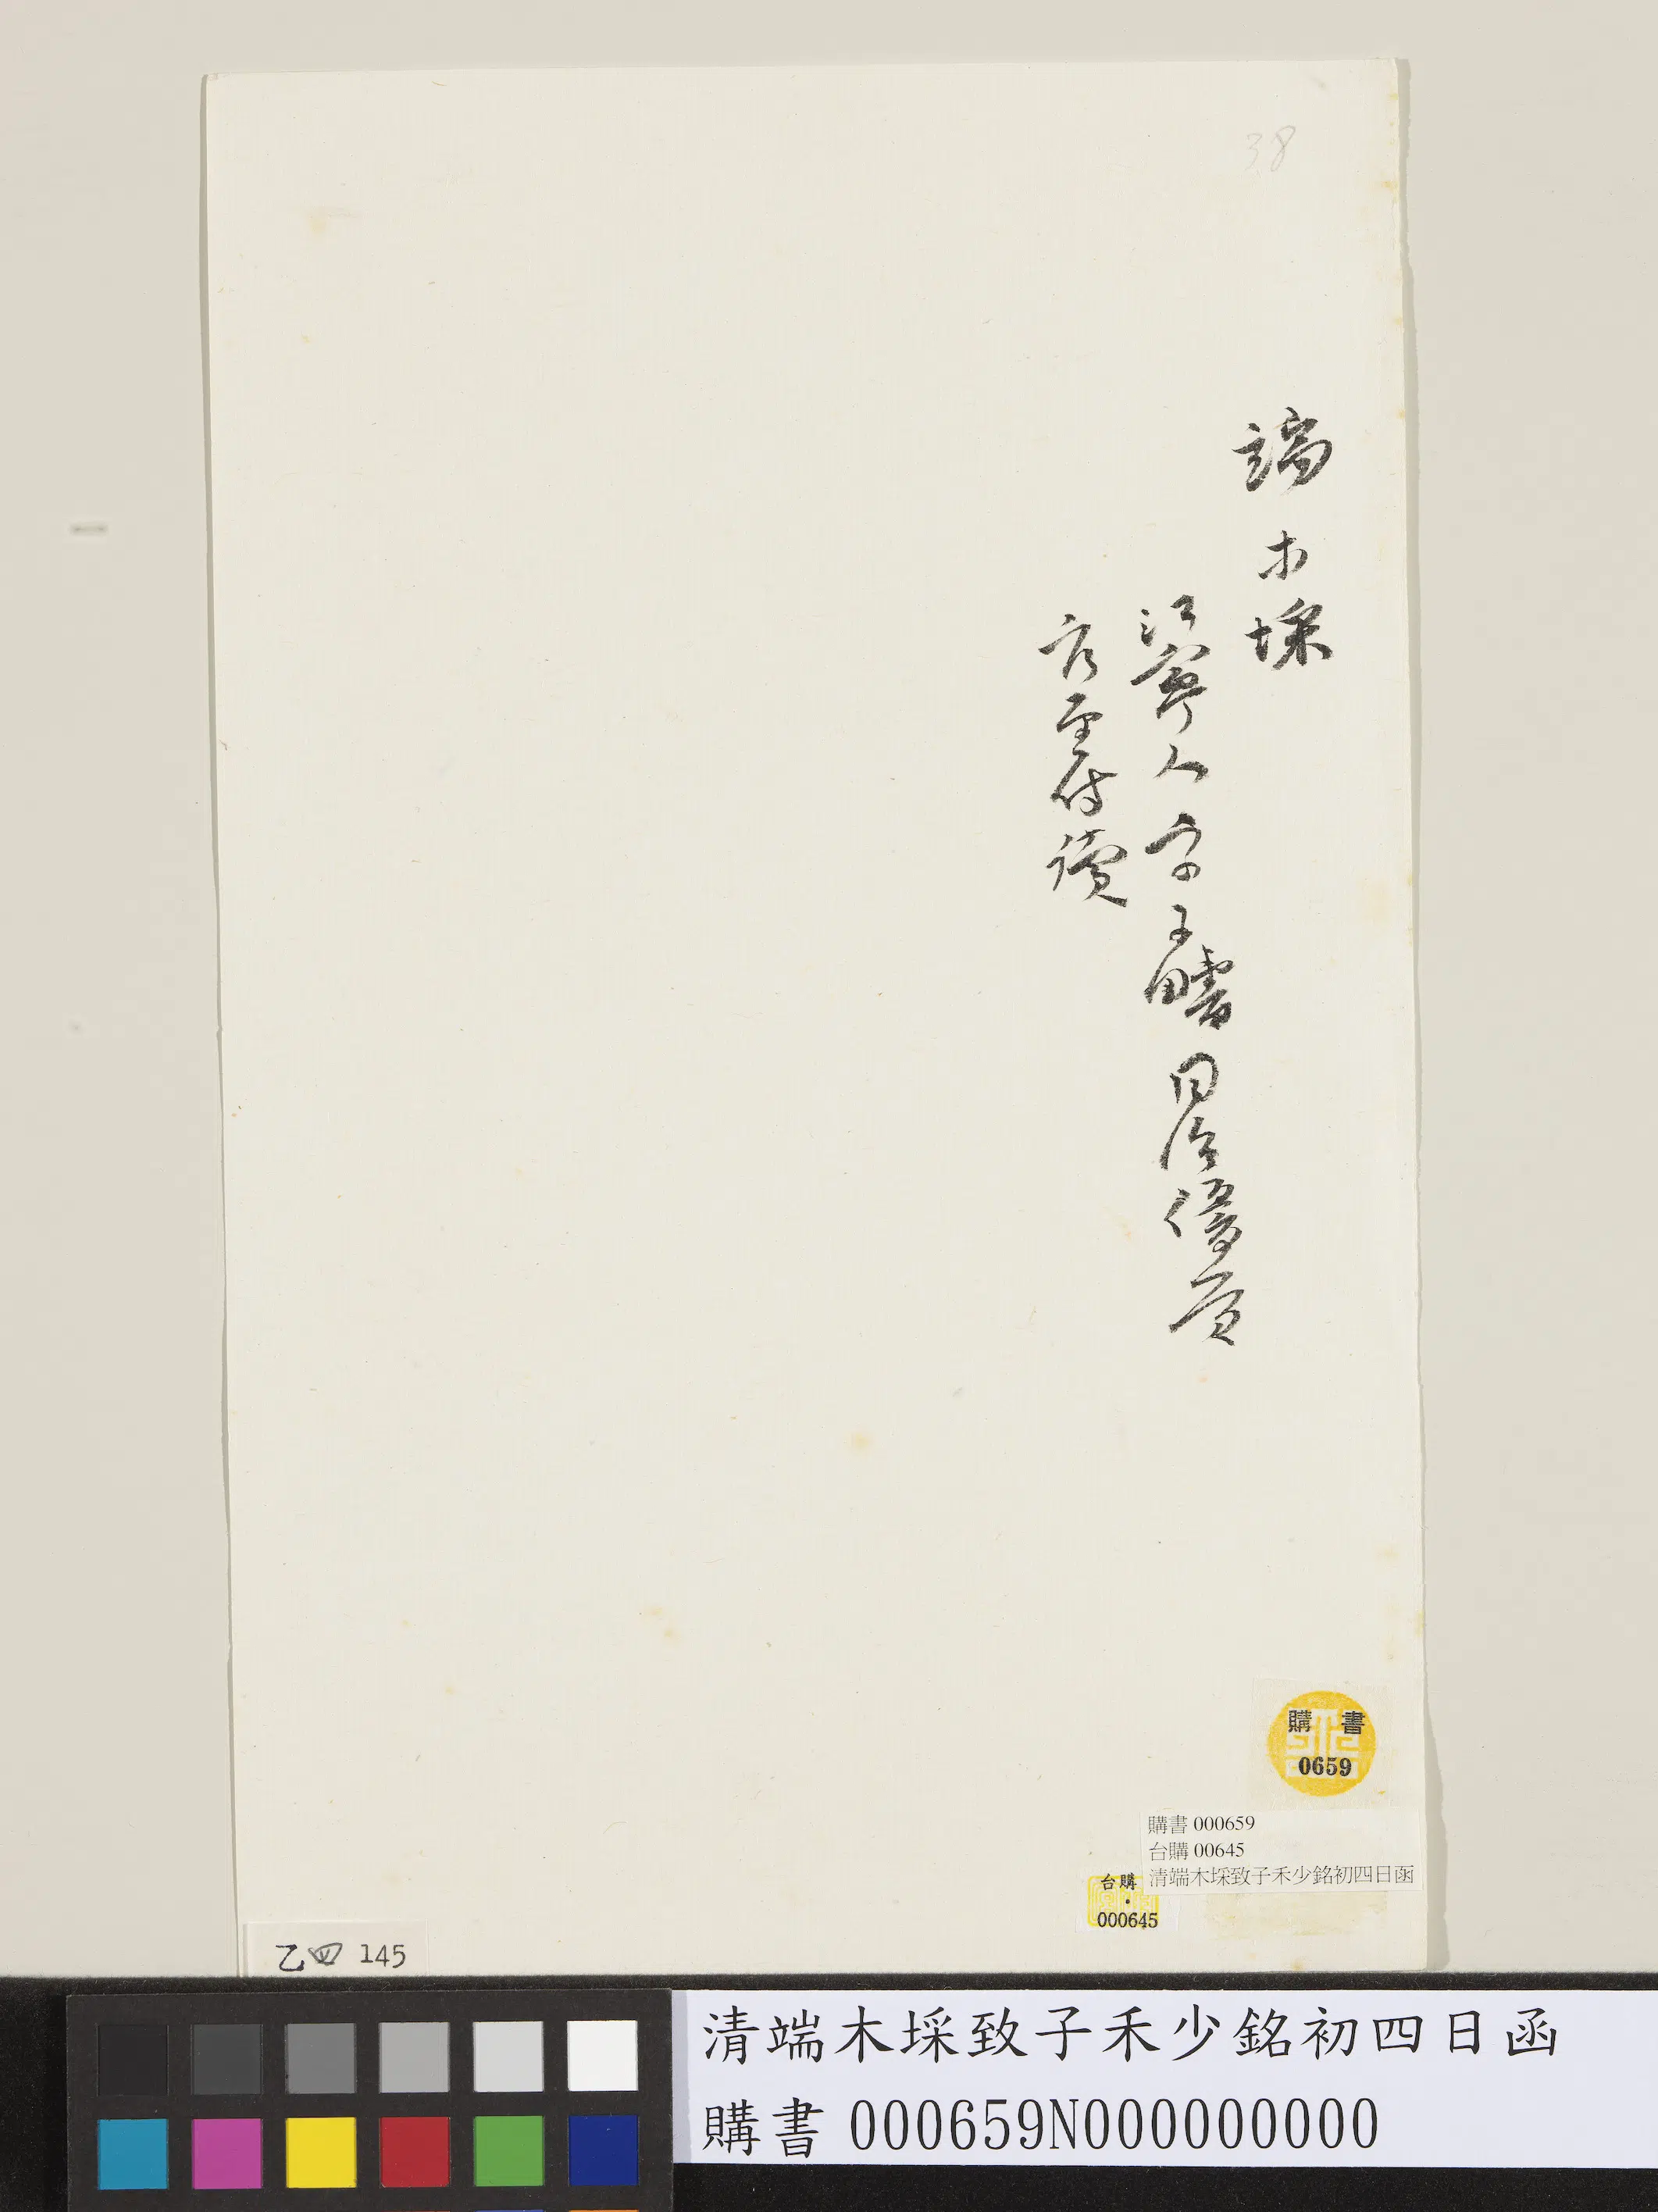 38
端木埰
江寧人字子疇同治優貢
官至侍讀
購書
0659
購書 000659
台購 00645
清端木埰致子禾少銘初四日函
台購
000645
乙四 145
清端木埰致子禾少銘初四日函
購書 000659N000000000